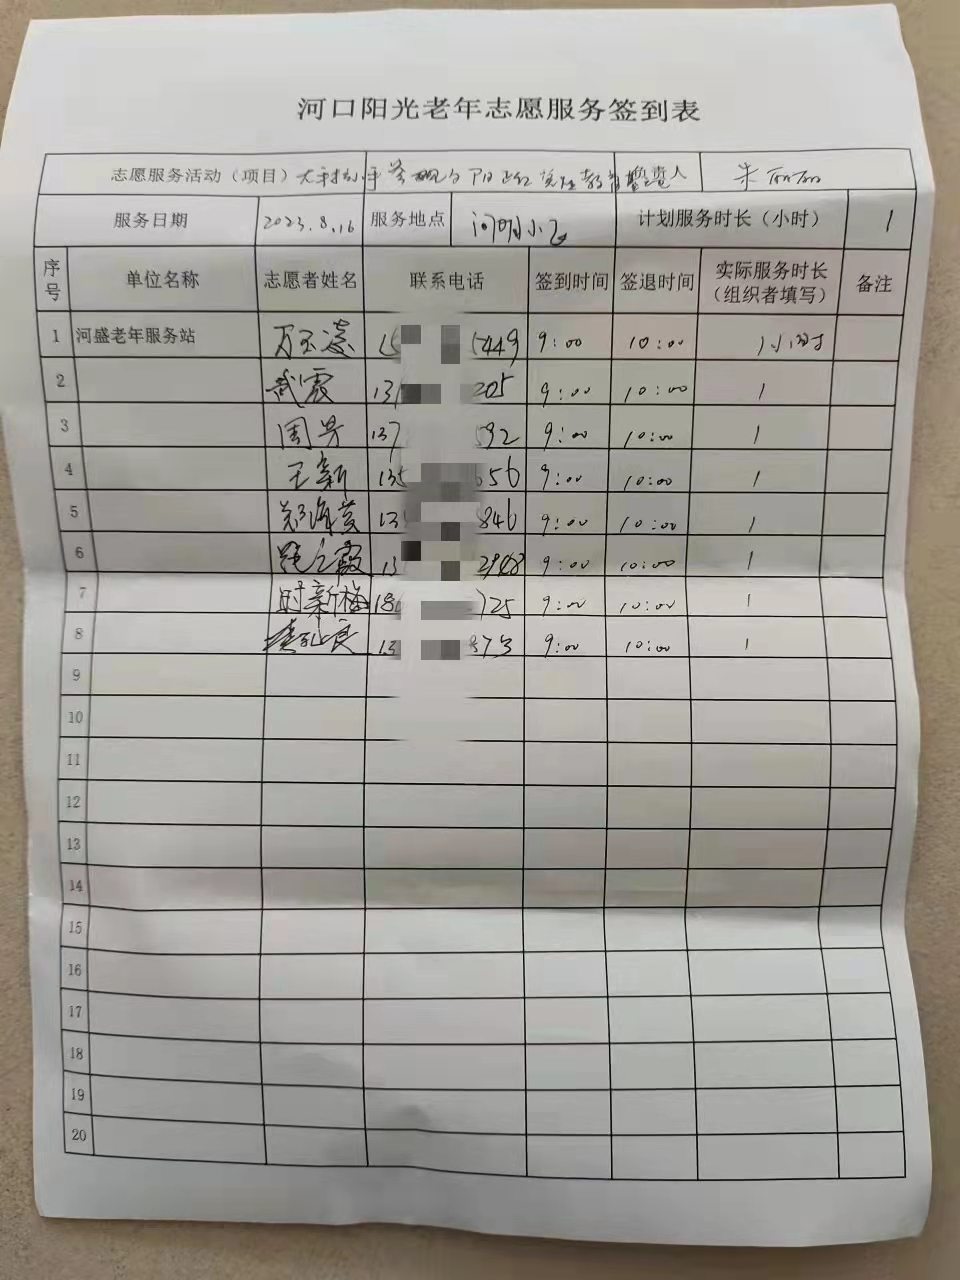 河口阳光老年志愿服务签到表
志愿服务活动（项目） 负责人 朱丽丽
服务日期 2023.8.16 服务地点 河明小区 计划服务时长（小时） 1
序号 单位名称 志愿者姓名 联系电话 签到时间 签退时间 实际服务时长（组织者填写） 备注
1 河盛老年服务站 万玉凌 15 5449 9:00 10:00 1小时
2 武霞 13 205 9:00 10:00 1
3 周芳 137 592 9:00 10:00 1
4 王新 135 656 9:00 10:00 1
5 郑海英 13 846 9:00 10:00 1
6 13 9:00 10:00 1
7 时新梅 18 725 9:00 10:00 1
8 13 573 9:00 10:00 1
9
10
11
12
13
14
15
16
17
18
19
20